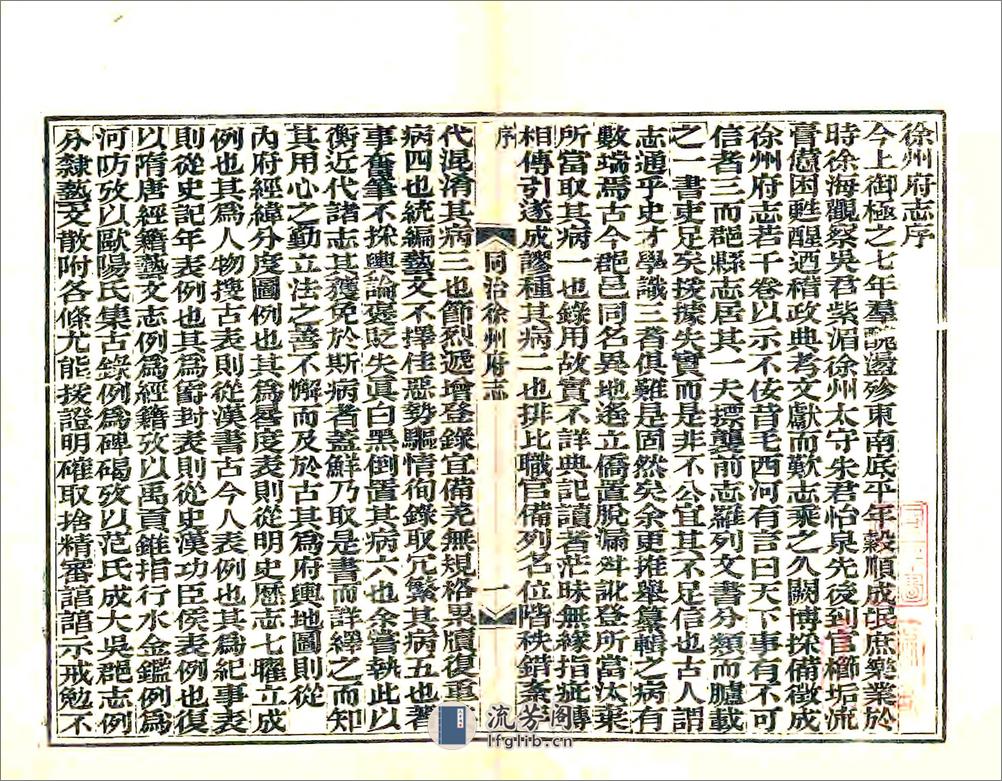 徐州府志序
今上御極之七年羣醜盪殄東南底平年穀順成氓庶樂業於
時徐海觀察吳君紫湄徐州太守朱君怡泉先後到官櫛垢流
膏僨困甦醒迺稽政典考文獻而歎志乘之久闕博採備徵成
徐州府志若干卷以示不佞昔毛西河有言曰天下事有不可
信者三而郡縣志居其一夫摽襲前志羅列文書分類而臚載
之一書吏足矣援據失實而是非不公宜其不足信也古人謂
志通乎史才學識三者俱難是固然矣余更推舉纂輯之病有
數端焉古今郡邑同名異地遙立僑置脫漏舛訛登所當汰棄
所當取其病一也錄用故實不詳典記讀者茫昧無緣指疵轉
相傳引遂成謬種其病二也排比職官備列名位階秩錯紊
序
同治徐州府志
一
代混淆其病三也節烈遞增登錄宜備羌無規格累牘復重
病四也統編藝文不擇佳惡勢驅情徇錄取宂繁其病五也著
事奮筆不採輿論褒貶失眞白黑倒置其病六也余嘗執此以
衡近代諸志其獲免於斯病者蓋鮮乃取是書而詳繹之而知
其用心之勤立法之善不懈而及於古其爲府輿地圖則從
內府經緯分度圖例也其爲晷度表則從明史歷志七曜立成
例也其爲人物搜古表則從漢書古今人表例也其爲紀事表
則從史記年表例也其爲封爵表則從史漢功臣侯表例也復
以隋唐經籍藝文志例爲經籍攷以禹貢錐指行水金鑑例爲
河防攷以歐陽氏集古錄例爲碑碣攷以范氏成大吳郡志例
分隸藝文散附各條尤能援證明確取捨精審諳諳示戒勉不
流芳阁
lfglib.cn